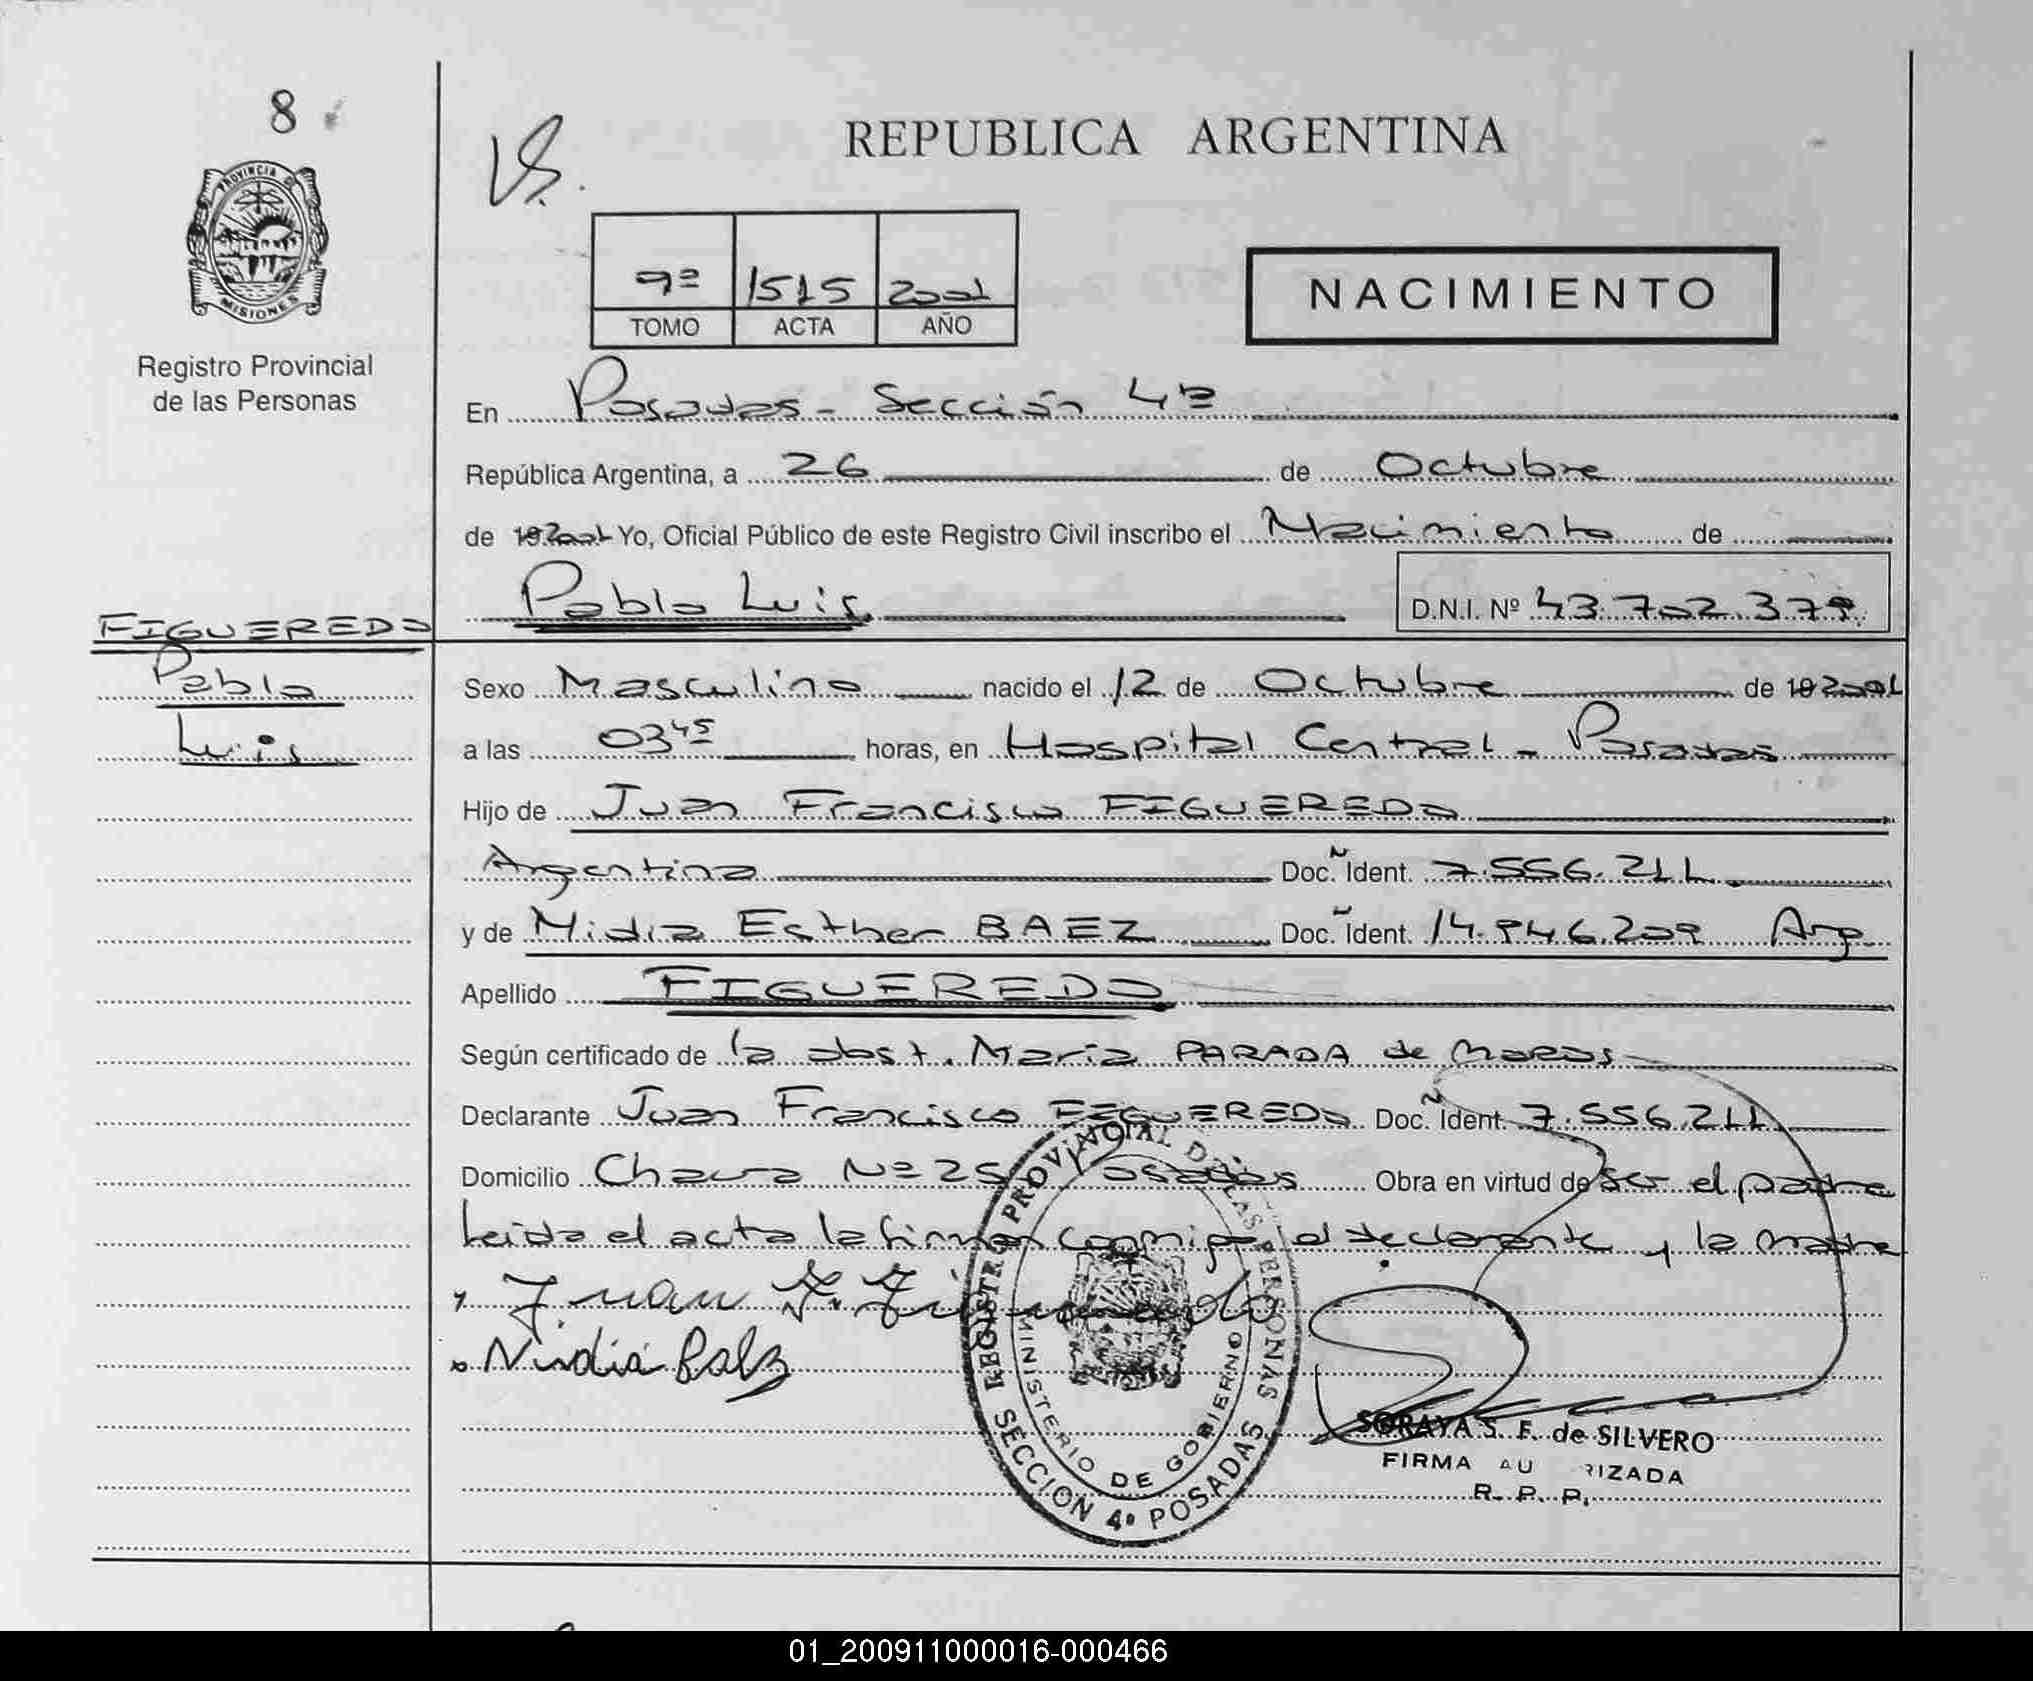 8
PROVINCIA DE
MISIONES
Registro Provincial
de las Personas
FIGUEREDO
Pablo
Luis
REPUBLICA ARGENTINA
9º 1515 2001
TOMO ACTA AÑO
NACIMIENTO
En Posadas - Sección 4ª
República Argentina, a 26 de Octubre
de 19 2001 Yo, Oficial Público de este Registro Civil inscribo el Nacimiento de
Pablo Luis D.N.I. Nº 43.702.379
Sexo Masculino nacido el 12 de Octubre de 19 2001
a las 03 45 horas, en Hospital Central - Posadas
Hijo de Juan Francisco FIGUEREDO
Argentina Doc. Ident. 7.556.211
y de Nidia Esther BAEZ Doc. Ident. 14.946.209 Arg.
Apellido FIGUEREDO
Según certificado de la obst. Maria PARADA de
Declarante Juan Francisco FIGUEREDO Doc. Ident. 7.556.211
Domicilio Chacra Nº 25 Posadas Obra en virtud de ser el padre
Leida el acta la firman conmigo el declarante y la madre
Juan F. Figueredo
Nidia Baez
REGISTRO PROVINCIAL DE LAS PERSONAS
MINISTERIO DE GOBIERNO
SECCION 4º POSADAS
SORAYA S. F. de SILVERO
FIRMA AU RIZADA
R. P. P.
01_200911000016-000466